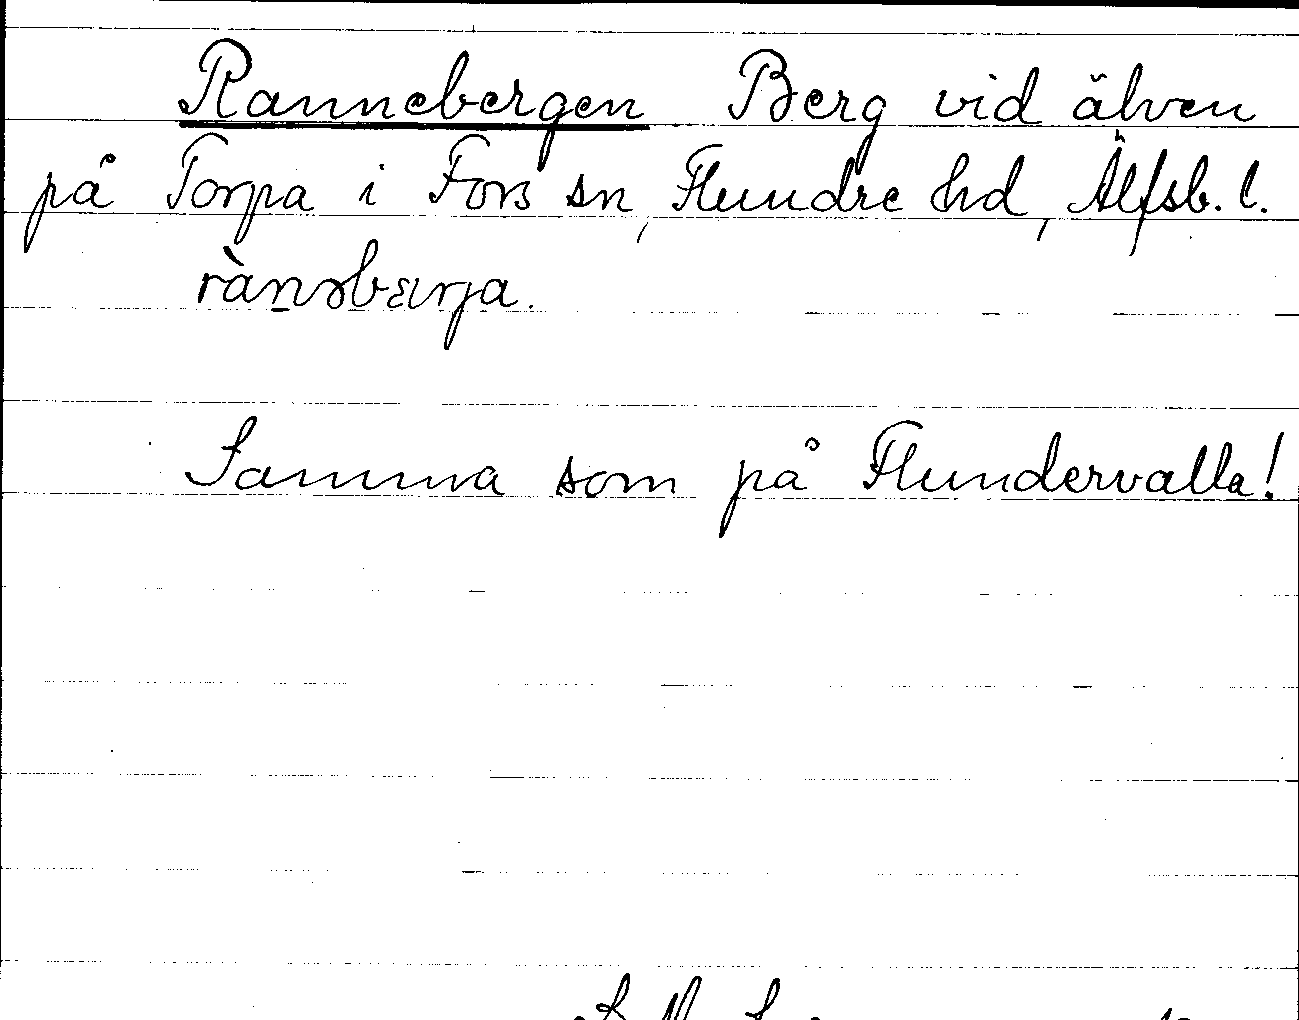 Rannebergen Berg vid älven
på Torpa i Fors sn, Flundre hd, Älfsb. l.
rànəbærja.
Samma som på Flundervalla!